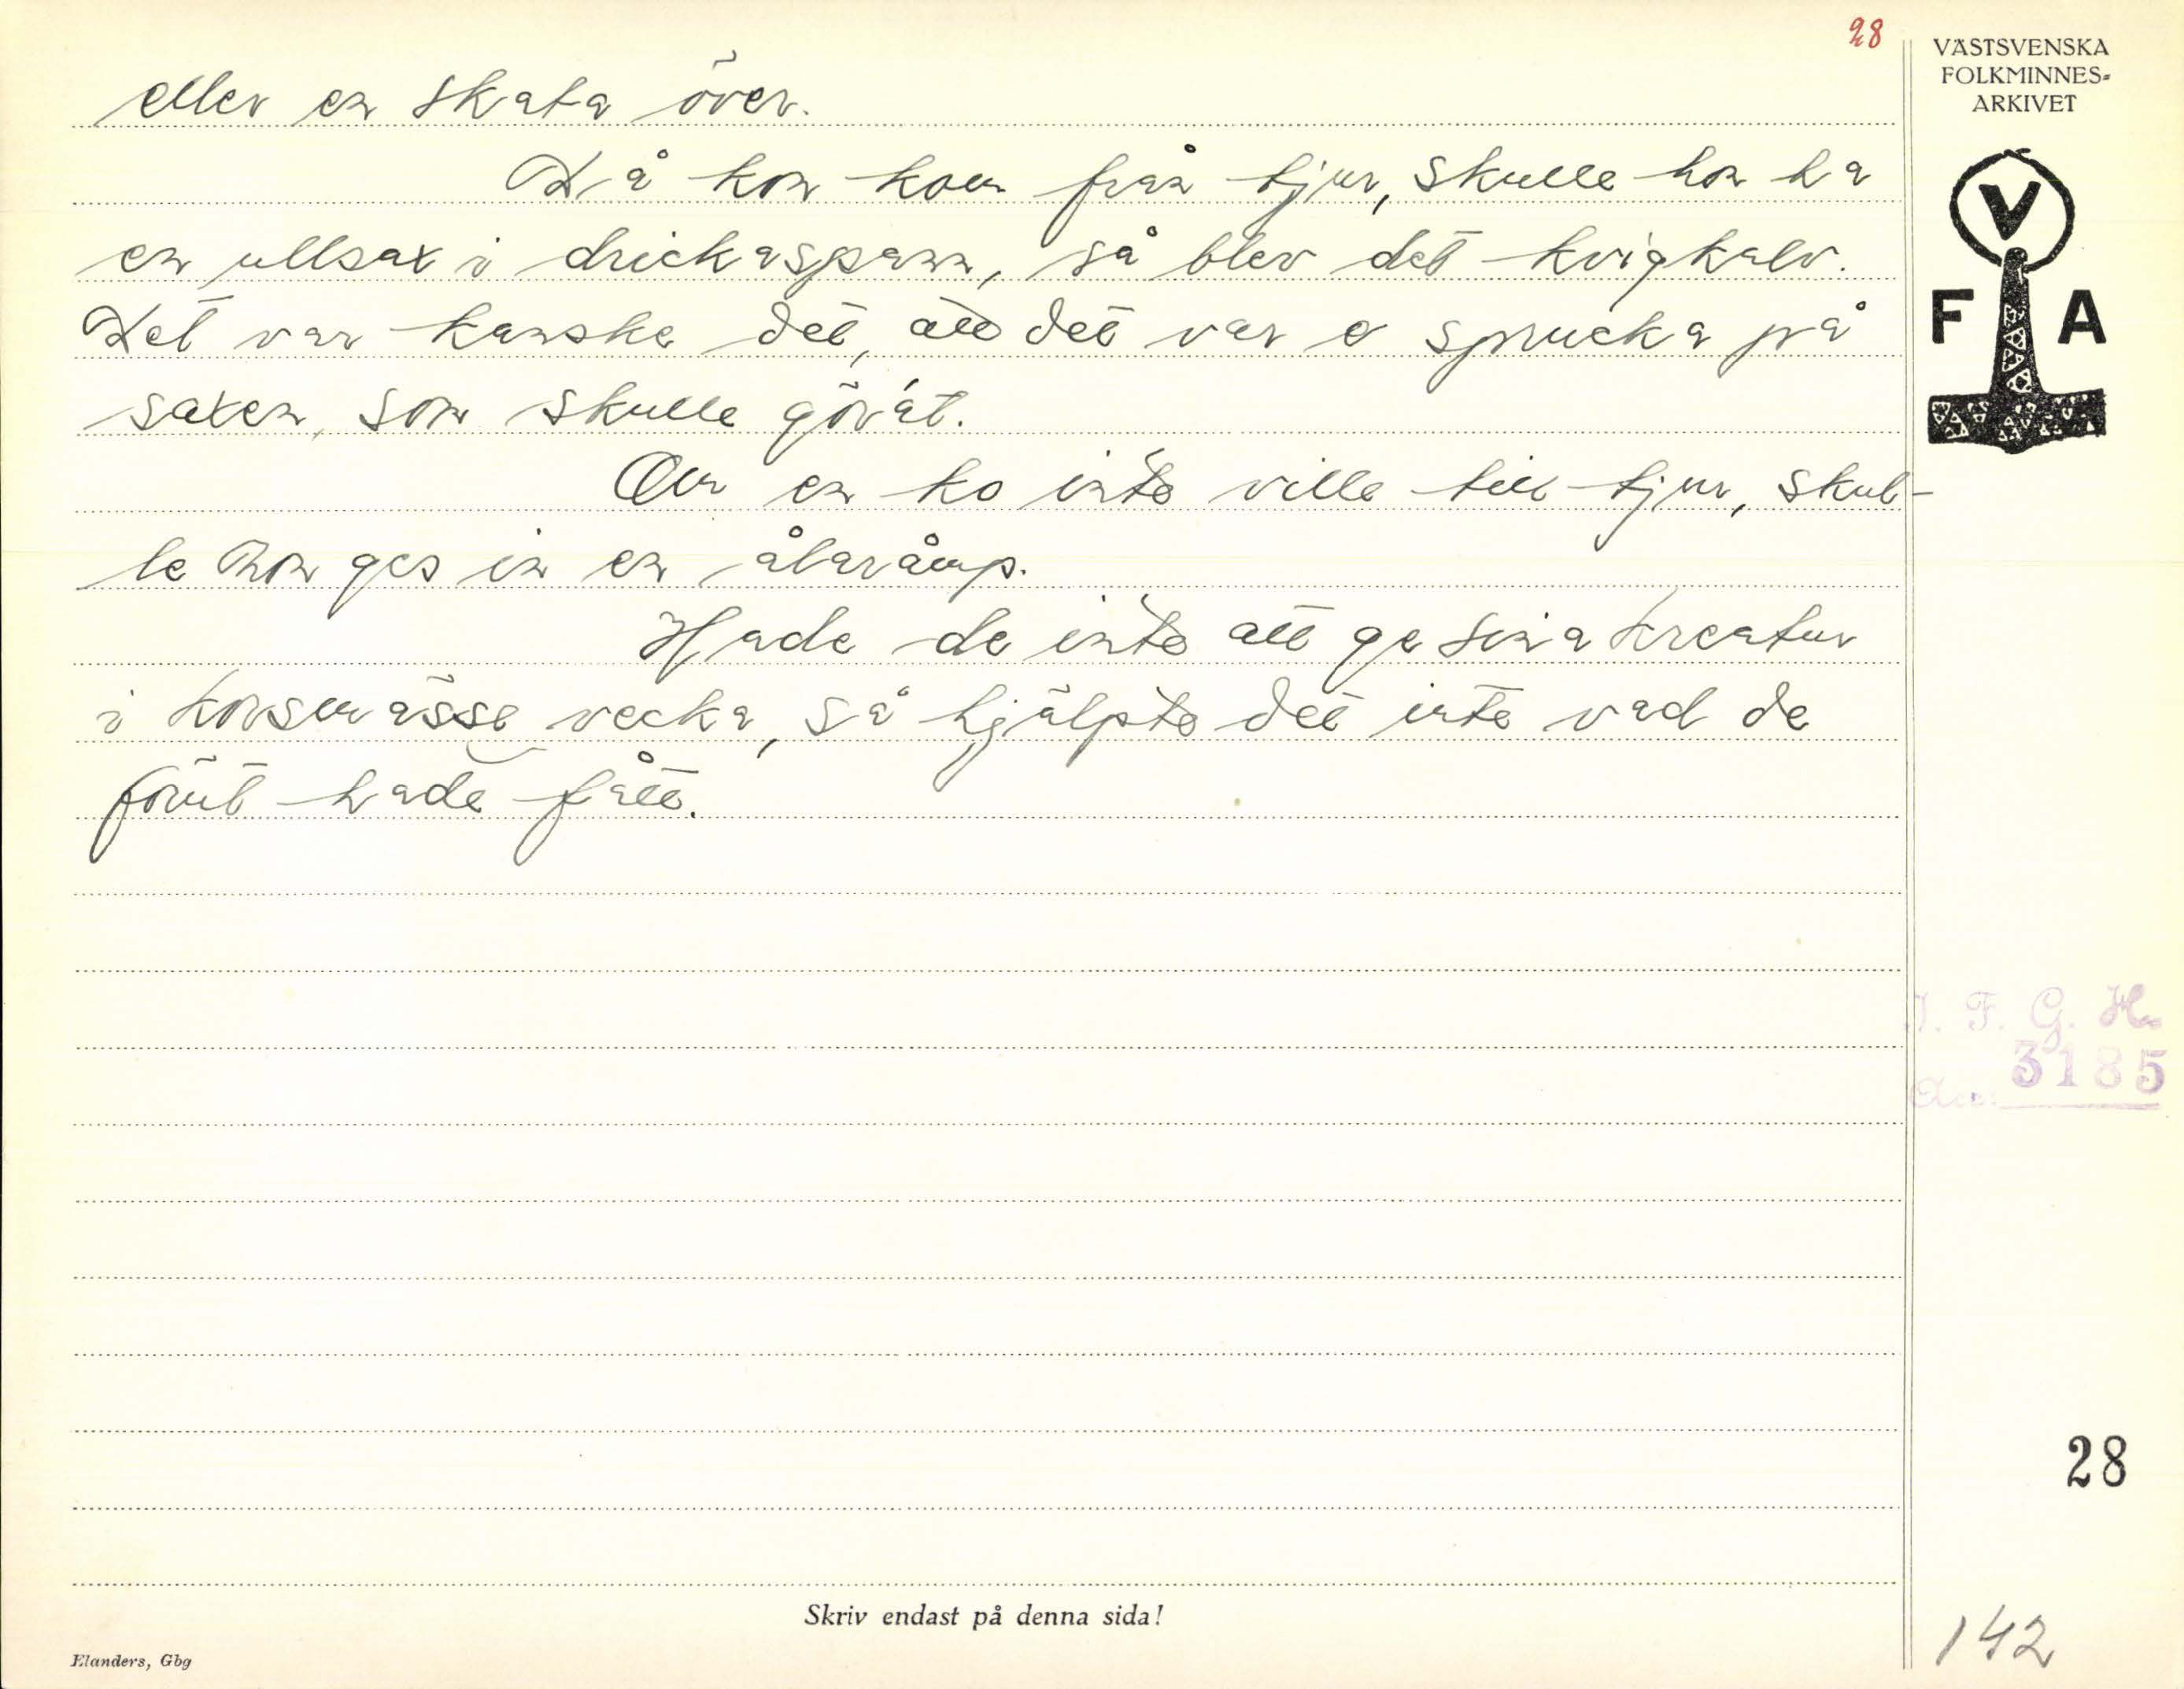 28
VÄSTSVENSKA
FOLKMINNES-
ARKIVET
V
F A
eller en skata över.
Då kon kom från tjur, skulle hon ha
en ullsax i drickaspann, så blev det kvigkalv.
Det var kanske det, att det var e sprucka på
saxen, som skulle gör'at.
Om en ko inte ville till tjur, skul-
le hon ges in en ålaråmp.
Hade de inte att ge sina kreatur
i korsmässe vecka, så hjälpte det inte vad de
förut hade fått.
I. F. G. H.
3185
28
Skriv endast på denna sida!
142
Elanders, Gbg